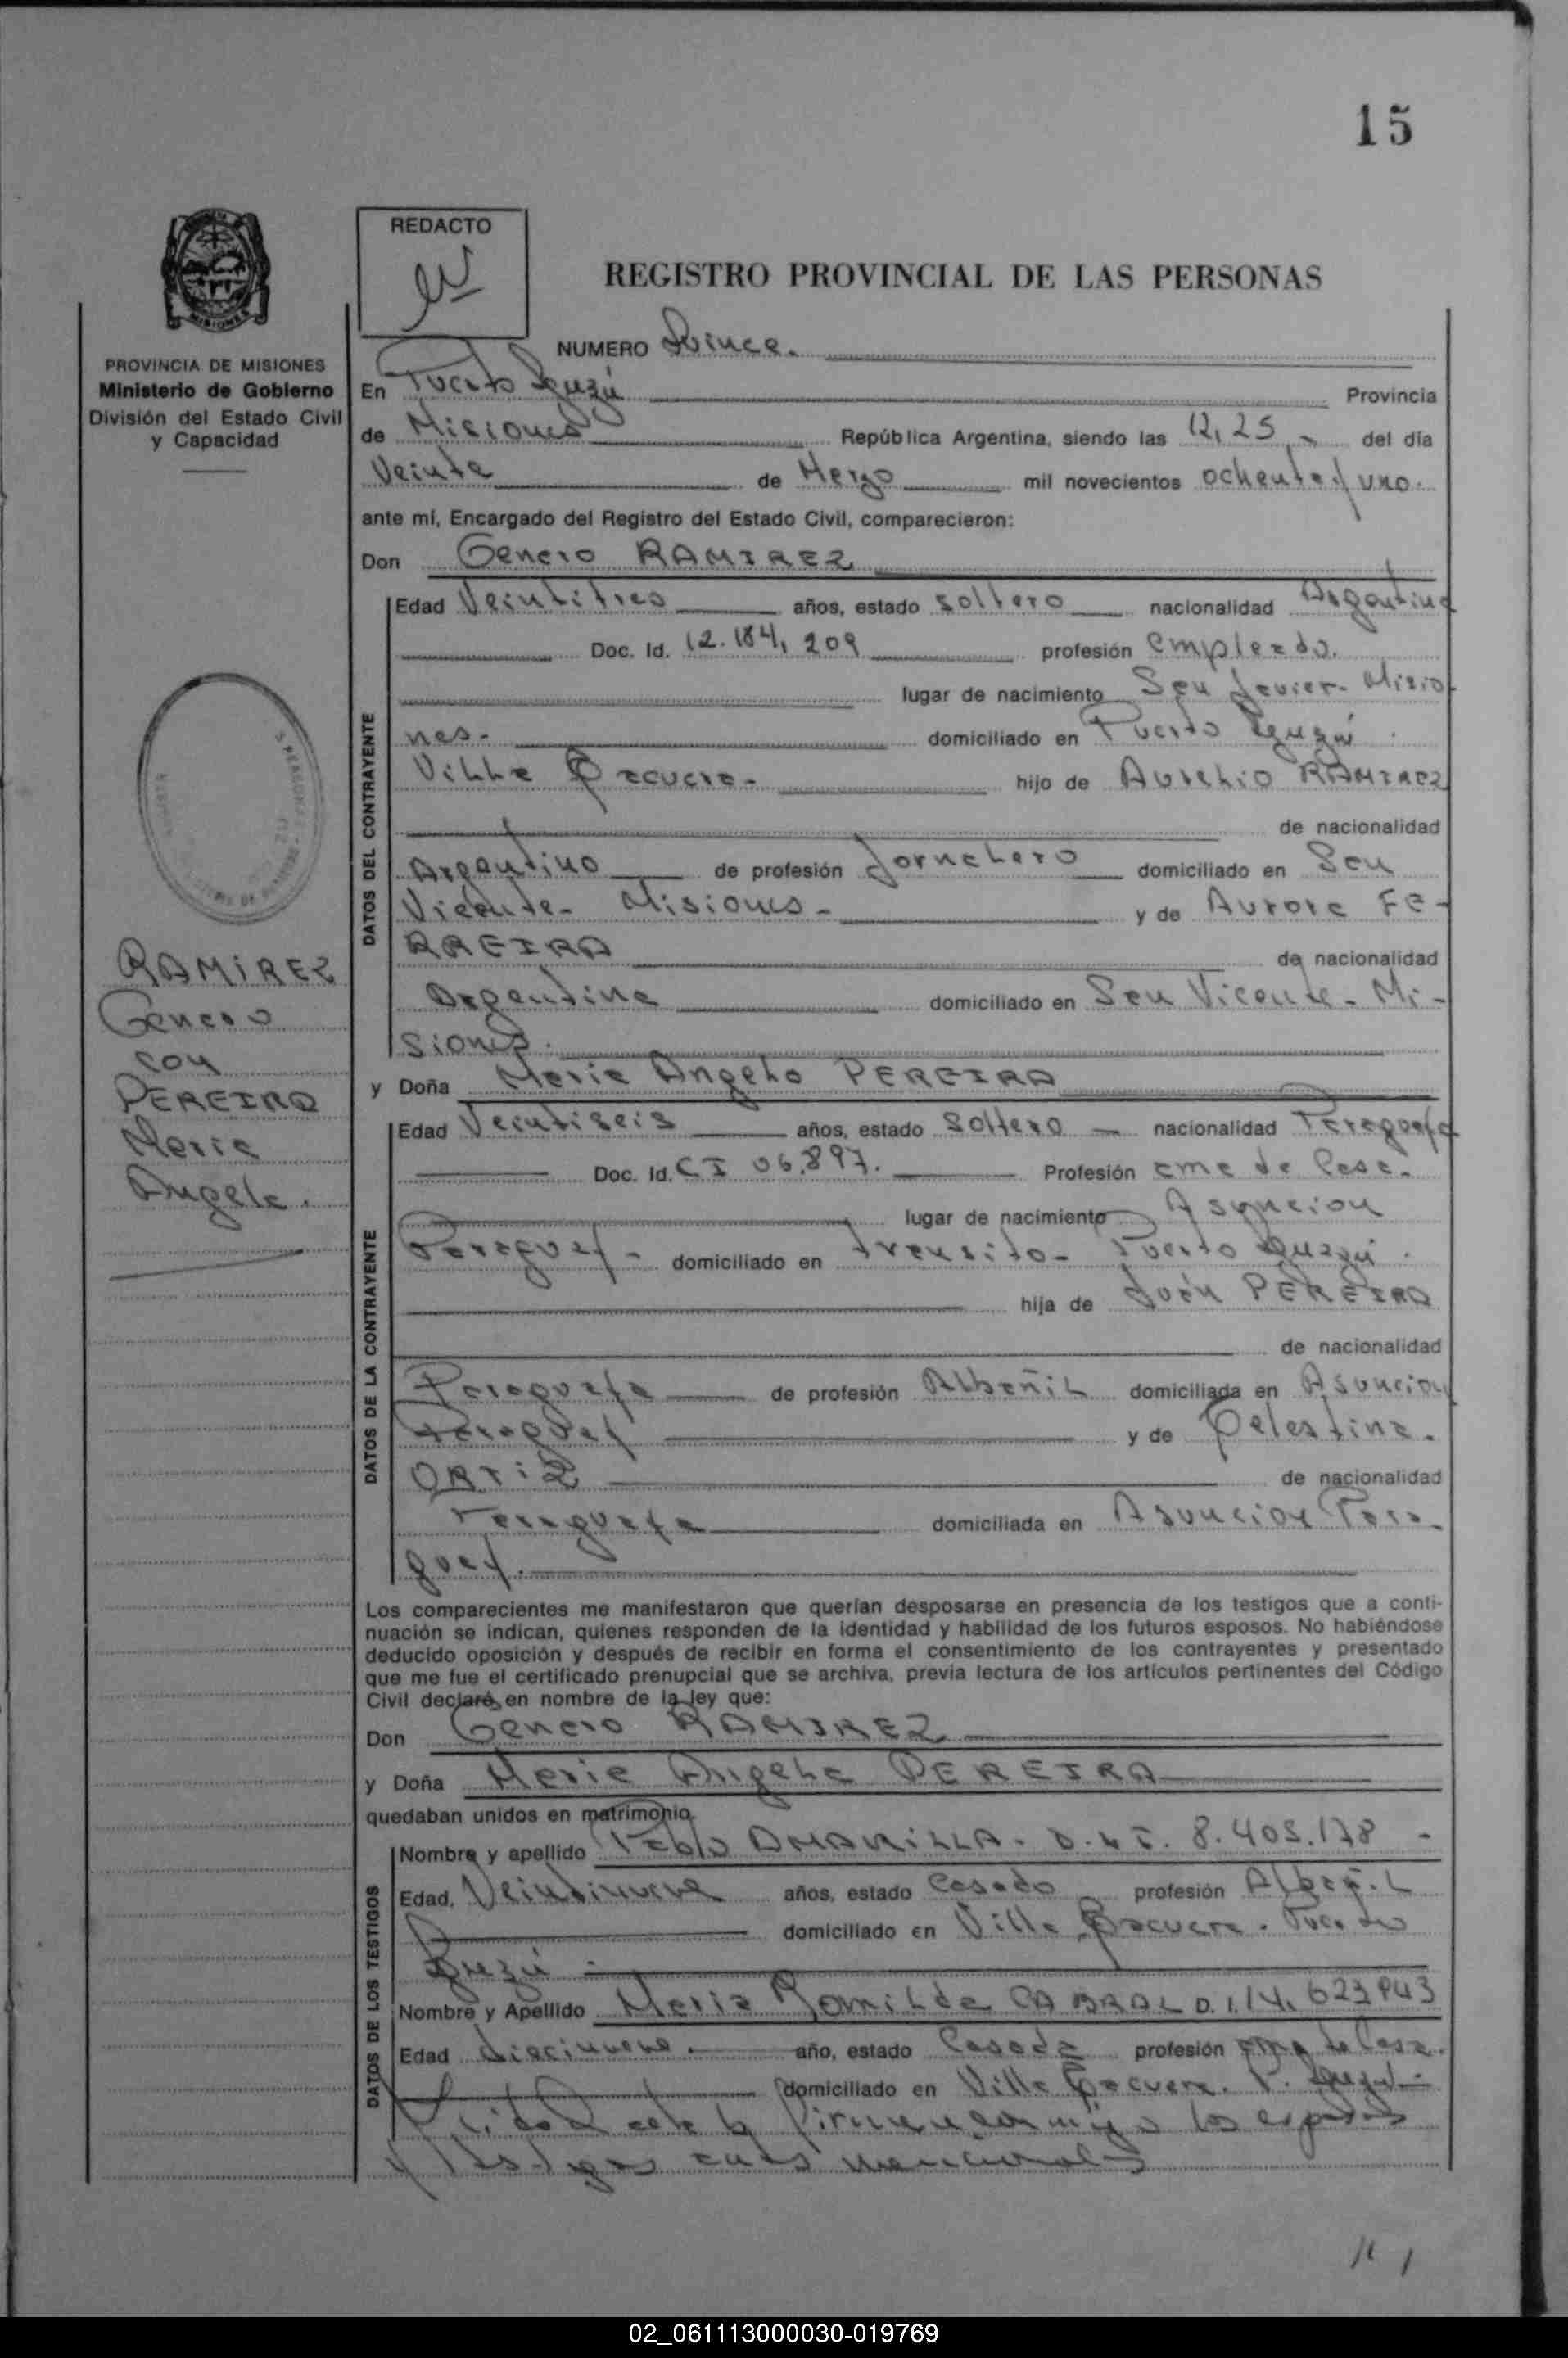 15
REDACTO
REGISTRO PROVINCIAL DE LAS PERSONAS
MISIONES
PROVINCIA DE MISIONES
Ministerio de Gobierno
División del Estado Civil
y Capacidad
NUMERO Quince.
En Puerto Iguazú Provincia
de Misiones República Argentina, siendo las 12,25 del día
Veinte de Marzo mil novecientos ochenta y uno.
ante mí, Encargado del Registro del Estado Civil, comparecieron:
Don Genaro RAMIREZ
DATOS DEL CONTRAYENTE
Edad Veintitres años, estado soltero nacionalidad Argentina
Doc. Id. 12.184,209 profesión empleado.
lugar de nacimiento San Javier - Misio
nes - domiciliado en Puerto Iguazú
Villa hijo de Aurelio RAMIREZ
de nacionalidad
Argentino de profesión Jornalero domiciliado en San
Vicente - Misiones - y de Aurora FE-
RREIRA de nacionalidad
Argentina domiciliado en San Vicente - Mi-
siones.
RAMIREZ
Genaro
con
PEREIRA
Maria
Angela.
y Doña Maria Angela PEREIRA
DATOS DE LA CONTRAYENTE
Edad Veintiseis años, estado soltera - nacionalidad Paraguaya
Doc. Id. CI 06.897. Profesión ama de Casa.
lugar de nacimiento Asuncion
Paraguay - domiciliado en transito - Puerto Iguazú.
hija de Juan PEREIRA
de nacionalidad
Paraguaya de profesión Albañil domiciliada en Asuncion
Paraguay y de Celestina.
ORTiZ de nacionalidad
Paraguaya domiciliada en Asuncion Para
guay.
Los comparecientes me manifestaron que querían desposarse en presencia de los testigos que a conti-
nuación se indican, quienes responden de la identidad y habilidad de los futuros esposos. No habiéndose
deducido oposición y después de recibir en forma el consentimiento de los contrayentes y presentado
que me fue el certificado prenupcial que se archiva, previa lectura de los artículos pertinentes del Código
Civil declaré en nombre de la ley que:
Don Genaro RAMIREZ
y Doña Maria Angela PEREIRA
quedaban unidos en matrimonio.
DATOS DE LOS TESTIGOS
Nombre y apellido Pablo AMARILLA - D.N.I. 8.405.178 -
Edad, Veintinueve años, estado Casado profesión Albañil
domiciliado en Villa Puerto
Iguazú -
Nombre y Apellido Maria Romilda CABRAL D.I. 14,623943
Edad diecinueve. año, estado Casada profesión ama de Casa.
domiciliado en Villa P. Iguazú -
Leida el acta la firman conmigo los esposos
y testigos antes mencionados
02_061113000030-019769